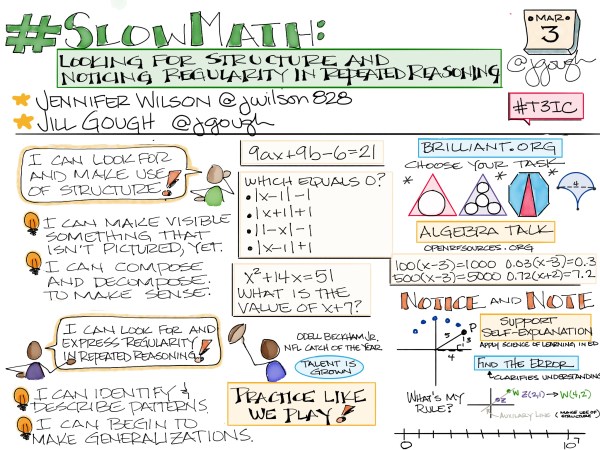 #SlowMath:
LOOKING FOR STRUCTURE AND
NOTICING REGULARITY IN REPEATED REASONING
MAR
3
@jgough
JENNIFER WILSON @jwilson828
JILL GOUGH @jgough
#T3IC
I CAN LOOK FOR
AND MAKE USE
OF STRUCTURE!
I CAN MAKE VISIBLE
SOMETHING THAT
ISN'T PICTURED, YET.
I CAN COMPOSE
AND DECOMPOSE
TO MAKE SENSE.
9ax+9b-6=21
WHICH EQUALS 0?
• |x-1|-1
• |x+1|+1
• |1-x|-1
• |x-1|+1
x²+14x=51
WHAT IS THE
VALUE OF x+7?
BRILLIANT.ORG
CHOOSE YOUR TASK
* * *
4
ALGEBRA TALK
OPENRESOURCES.ORG
100(x-3)=1000 0.03(x-3)=0.3
500(x-3)=5000 0.72(x+2)=7.2
I CAN LOOK FOR AND
EXPRESS REGULARITY
IN REPEATED REASONING!
I CAN IDENTIFY &
DESCRIBE PATTERNS.
I CAN BEGIN TO
MAKE GENERALIZATIONS.
ODELL BECKHAM, JR.
NFL CATCH OF THE YEAR
TALENT IS
GROWN
PRACTICE LIKE
WE PLAY!
NOTICE AND NOTE
P
5
3
4
WHAT'S MY
RULE?
SUPPORT
SELF-EXPLANATION
APPLY SCIENCE OF LEARNING IN ED
FIND THE ERROR
CLARIFIES UNDERSTANDING
W
Z
Z(2,1) → W(4,2)
AUXILIARY LINE (MAKE USE OF
STRUCTURE)
0
10